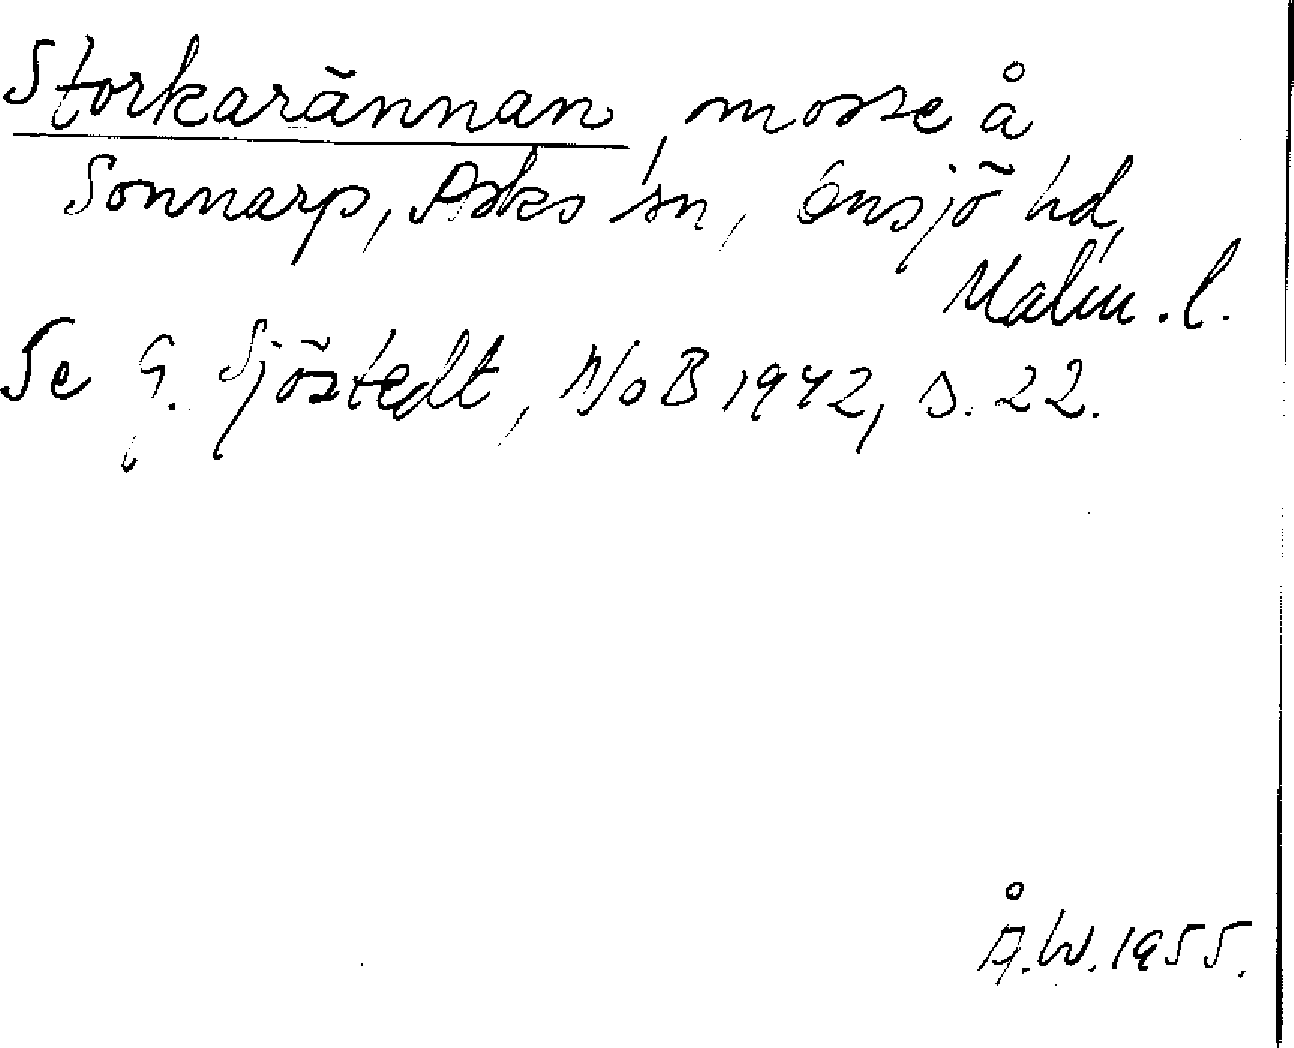 Storkarännan, mosse å
Sonnarp, Asks sn, Önsjö hd,
Malm. l.
Se G. Sjöstedt, NoB 1942, s. 22.
Å.W. 1955.